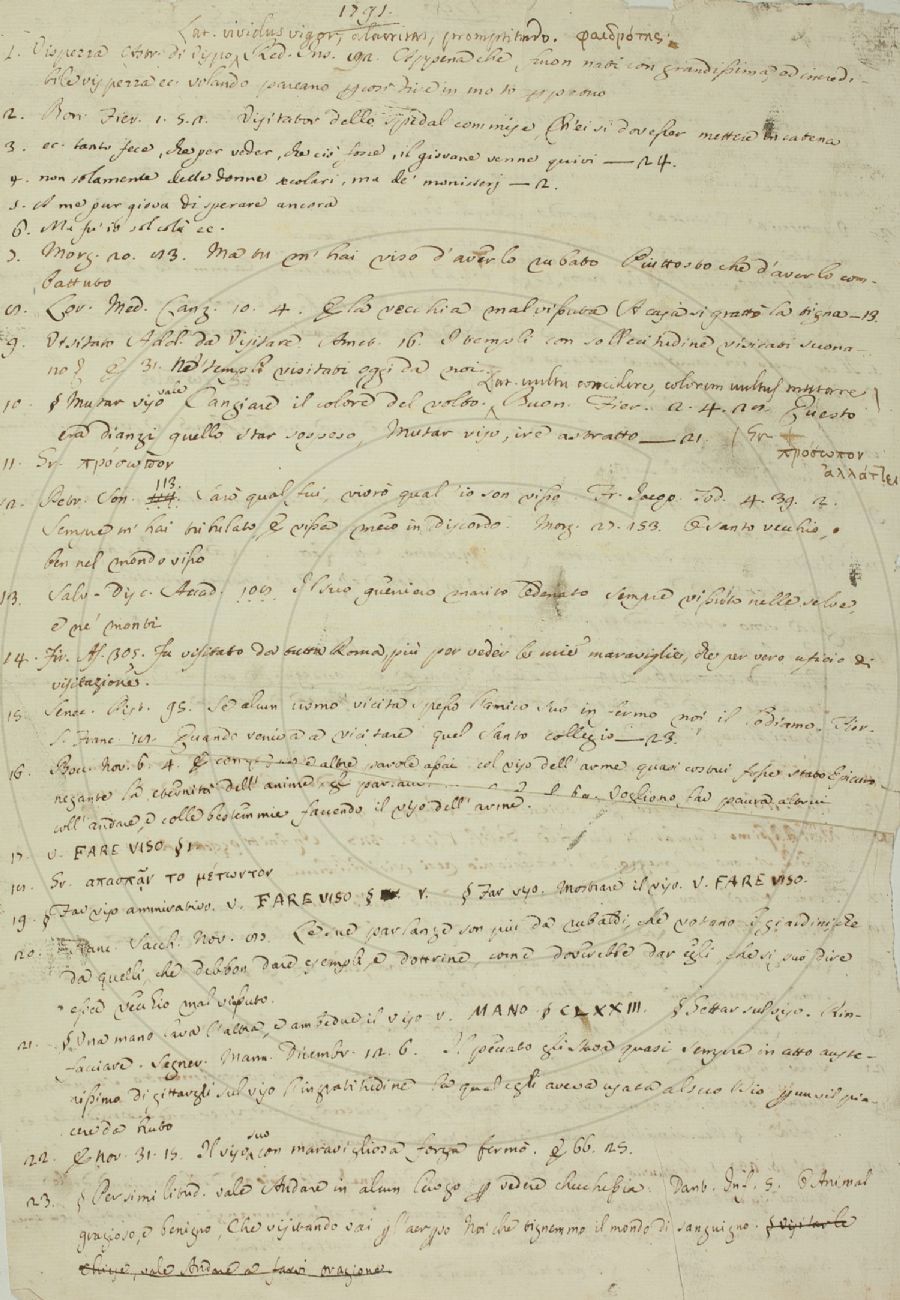 1791.
Lat. vividus vigor, alacritas, promptitudo. φαιδρότης.
1. Vispezza Astr. di Vispo. Red. Ins. che suon nati con grandissima, ed incredi-
bile vispezza ec. volando
2. Bon. Fier. 1. 5. 2. Visitator dello Spedal commise, Ch'ei si dovesser mettere in catena
3. ec. tanto fece, che per veder, che ciò fosse, il giovane venne quivi — 24.
4. non solamente delle donne secolari, ma de' monisterj — 2.
5. A me pur giova di sperare ancora
6. Ma fu' io sol colà ec.
7. Morg. 20. 83. Ma tu m'hai viso d'averlo rubato Piuttosto che d'averlo com-
battuto
8. Lor. Med. Canz. 10. 4. E la vecchia mal vissuta A casa si grattò la tigna — 13.
9. Visitato Add. da Visitare Amet. 16. I templi con sollecitudine visitati suona-
no E 31. Ne' templi visitati oggi da noi.
Lat. vultu concidere, colorem vultus mutare
10. § Mutar viso vale Cangiare il colore del volto. Buon. Fier. 2. 4. 20. Questo
era dianzi quello star sospeso, Mutar viso, ire astratto — 21. Gr.
πρόσωπον
ἀλλάττει
11. Gr. πρόσωπον
12. Petr. Son. 113. Sarò qual fui, vivrò qual io son visso. Fr. Jacop. Tod. 4. 39. 2.
Sempre m'hai tribulato, E vissa meco in discordo. Morg. 27. 153. O santo vecchio, o
ben nel mondo visso
13. Salv. Disc. Accad. Il suo guerriero marito sempre vissuto nelle selve
e ne' monti
14. Fir. As. 305. Fu visitato da tutta Roma più per veder le mie maraviglie, che per vero uficio di
visitazione.
15. Senec. Pist. 95. Se alcun uomo vicita spesso l'amico suo infermo noi il lodiamo. Fior.
S. Franc. Quando veniva a vicitare quel santo collegio — 23.
16. Bocc. Nov. 6. 4. E con queste e altre parole assai col viso dell'arme quasi costui fosse stato Epicuro
negante la eternità dell'anime, gli parlava. Vogliono far paura altrui
coll'andare, e colle bestemmie facendo il viso dell'arme.
17. V. FARE VISO § 1.
18. Gr. απασπᾶν το μέτωπον
19. § Far viso ammirativo. V. FARE VISO § V. § Far viso. Mostrare il viso. V. FARE VISO.
20. Franc. Sacch. Nov. Le due parlanze son più da rubaldi, che votano i giardini, che
da quelli, che debbon dare esempli, e dottrine, come doverebbe dar egli, che si può dire
essere vecchio mal vissuto.
21. § Una mano lava l'altra, e ambedue il viso V. MANO § CLXXIII. § Gettar sul viso. Rin-
facciare. Segner. Mann. Dicembr. 12. 6. Il peccato gli stava quasi sempre in atto auste-
rissimo di gittargli sul viso l'ingratitudine la qual egli aveva usata al suo Dio per un vil pia-
cere
22. E nov. 31. 15. Il viso suo con maravigliosa forza fermò. E 66. 25.
23. § Per similitud. vale Andare in alcun luogo per vedere checchessia. Dant. Inf. 5. O Animal
grazioso, e benigno, Che visitando vai per l'aer perso Noi che tignemmo il mondo di sanguigno. § Visitar le
Chiese, vale Andare a farvi orazione